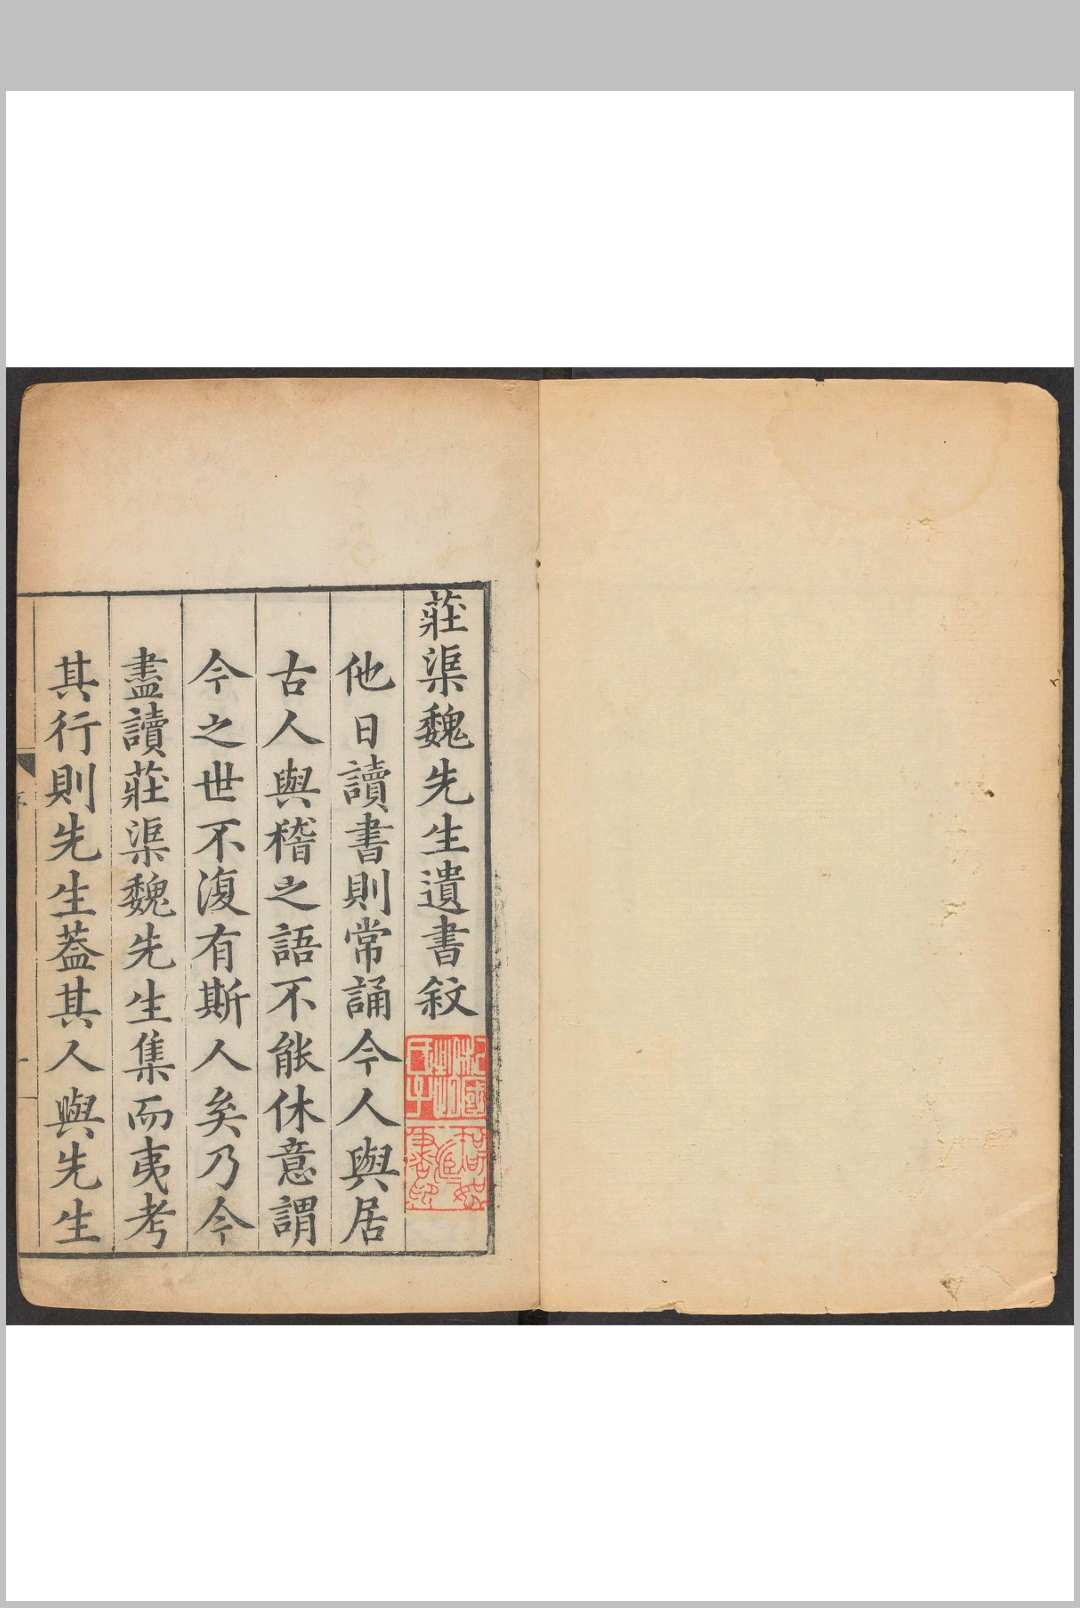 莊渠魏先生遺書敘
他日讀書則常誦今人與居
古人與稽之語不能休意謂
今之世不復有斯人矣乃今
盡讀莊渠魏先生集而夷考
其行則先生葢其人與先生
序
一